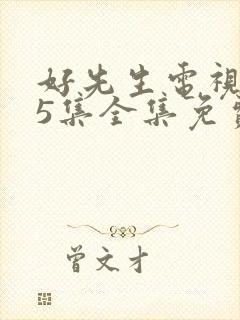 好先生電視
5集全集免費
曾文才